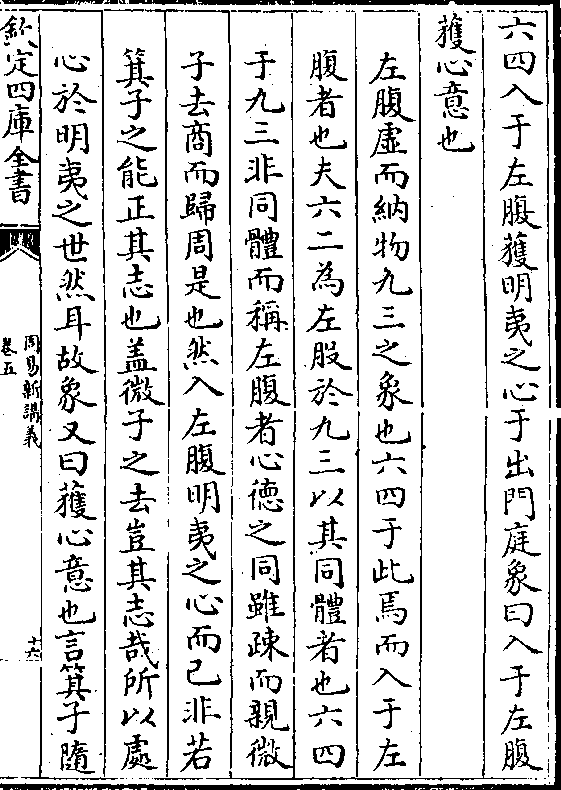 六四入于左腹獲明夷之心于出門庭象曰入于左腹
獲心意也
左腹虛而納物九三之象也六四于此焉而入于左
腹者也夫六二為左股於九三以其同體者也六四
于九三非同體而稱左腹者心德之同雖疎而親微
子去商而歸周是也然入左腹明夷之心而已非若
箕子之能正其志也蓋微子之去豈其志哉所以處
心於明夷之世然耳故象又曰獲心意也言箕子隨
欽定四庫全書
周易新講義
卷五
十六